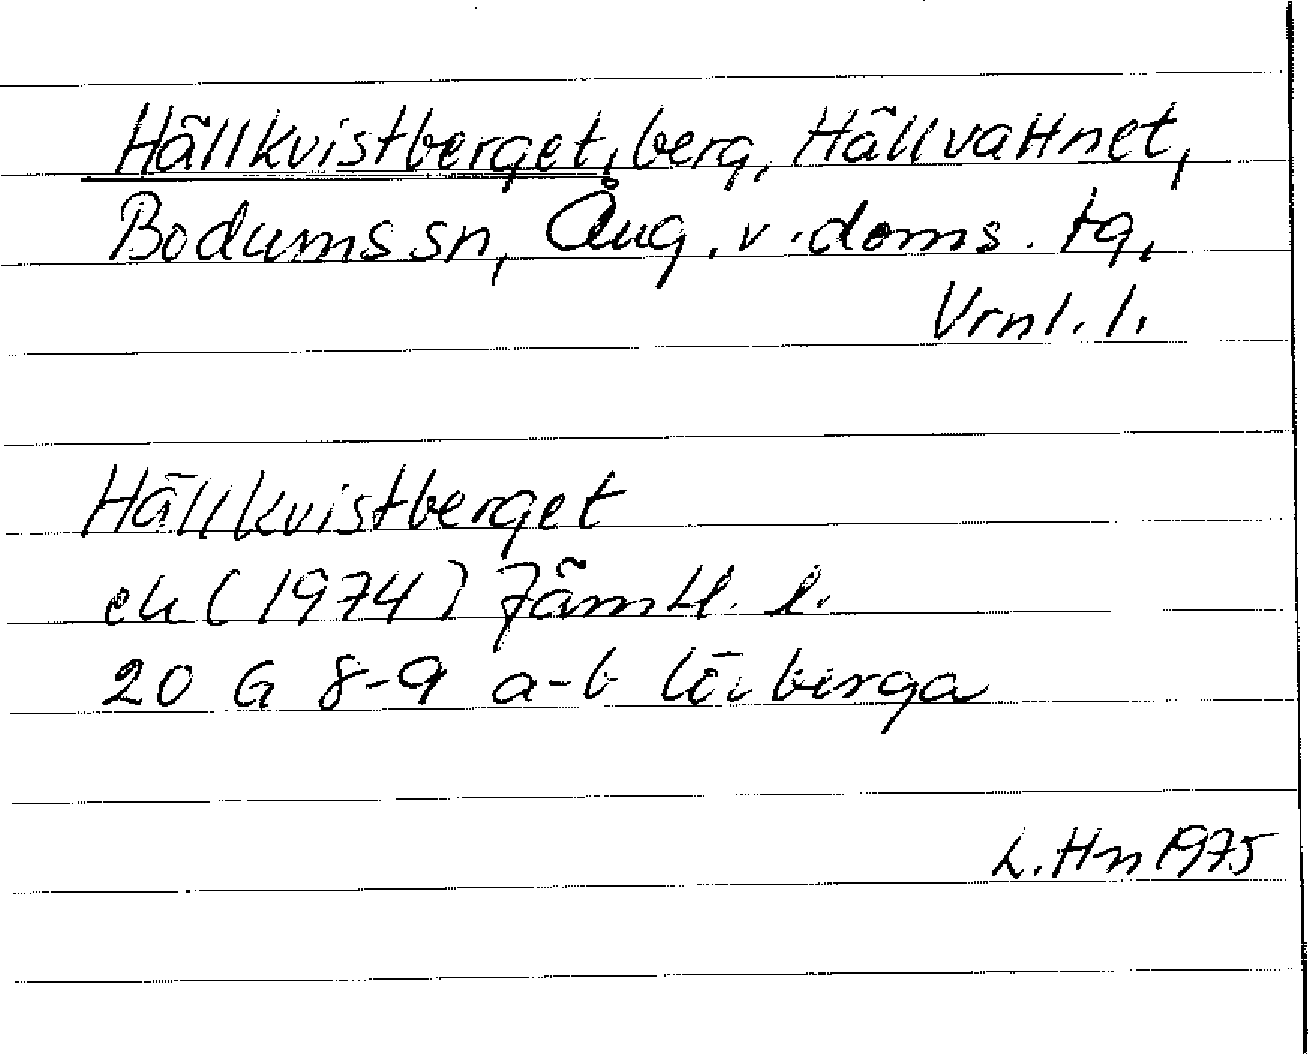 Hällkvistberget, berg, Hällvattnet,
Bodums sn, Ång. v. doms. tg,
Vrnl. l.
Hällkvistberget
ek (1974) Jämtl. l.
20 G 8-9 a-b Lövberga
L. Hn 1975